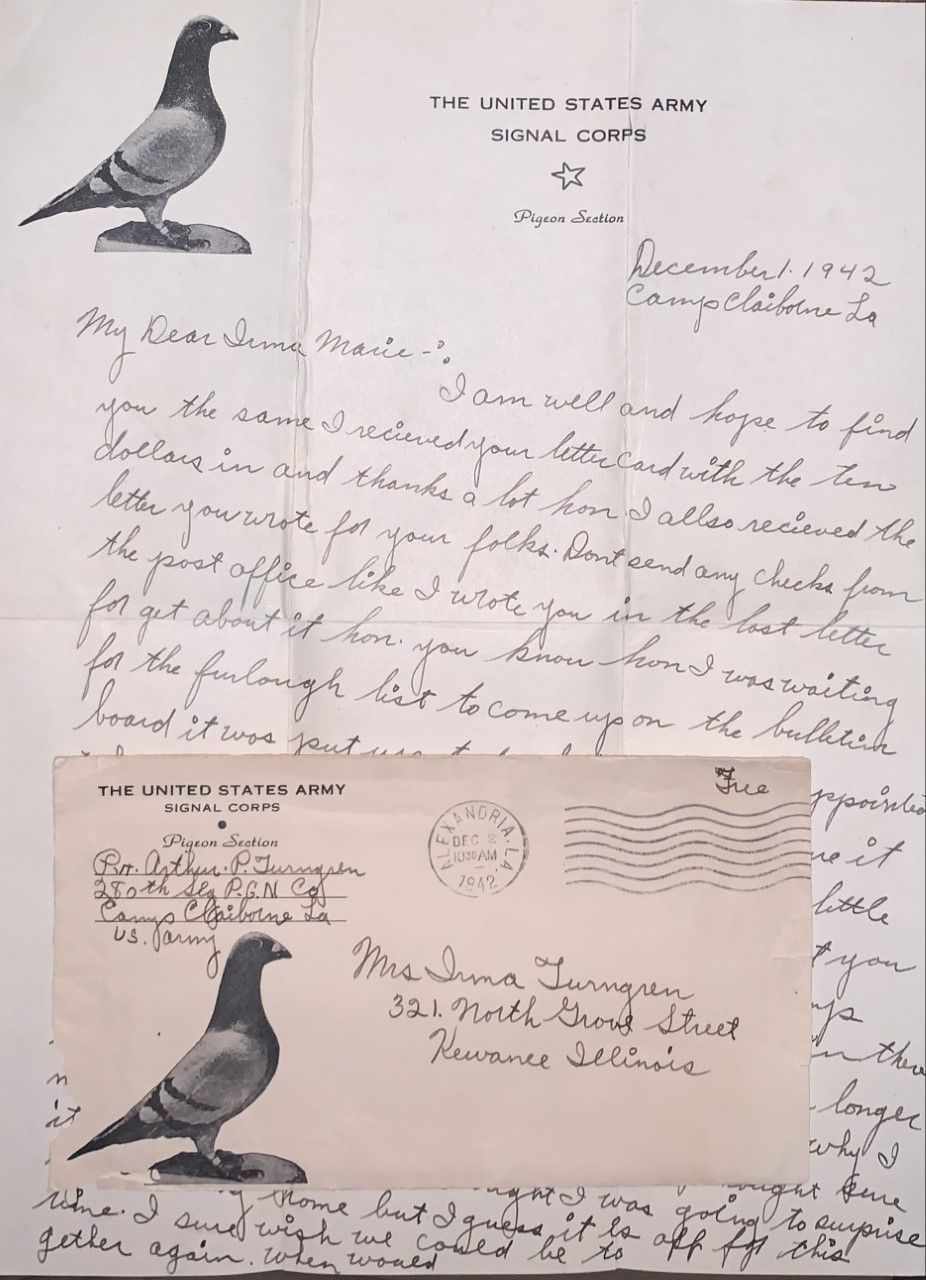 THE UNITED STATES ARMY
SIGNAL CORPS
Pigeon Section
December 1. 1942
Camp Claiborne La
My Dear Irma Marie -:
I am well and hope to find
you the same I recieved your letter card with the ten
dollars in and thanks a lot hon. I allso recieved the
letter you wrote for your folks. Dont send any checks from
the post office like I wrote you in the last letter
for get about it hon. you know hon I was waiting
for the furlough list to come up on the bulletin
board it was put up
ppointed
it
little
you
in there
longer
why I
sure
home but I guess I was going to surprise
time. I sure wish we could be to
gether again. when would
it is off for this
THE UNITED STATES ARMY
SIGNAL CORPS
Pigeon Section
Pvt. Arthur. P. Turngren
280th Sig P.G.N Co
Camp Claiborne La
US. Army
ALEXANDRIA, LA.
DEC 2
1030 AM
1942
Free
Mrs Irma Turngren
321. North Grove Street
Kewanee Illinois